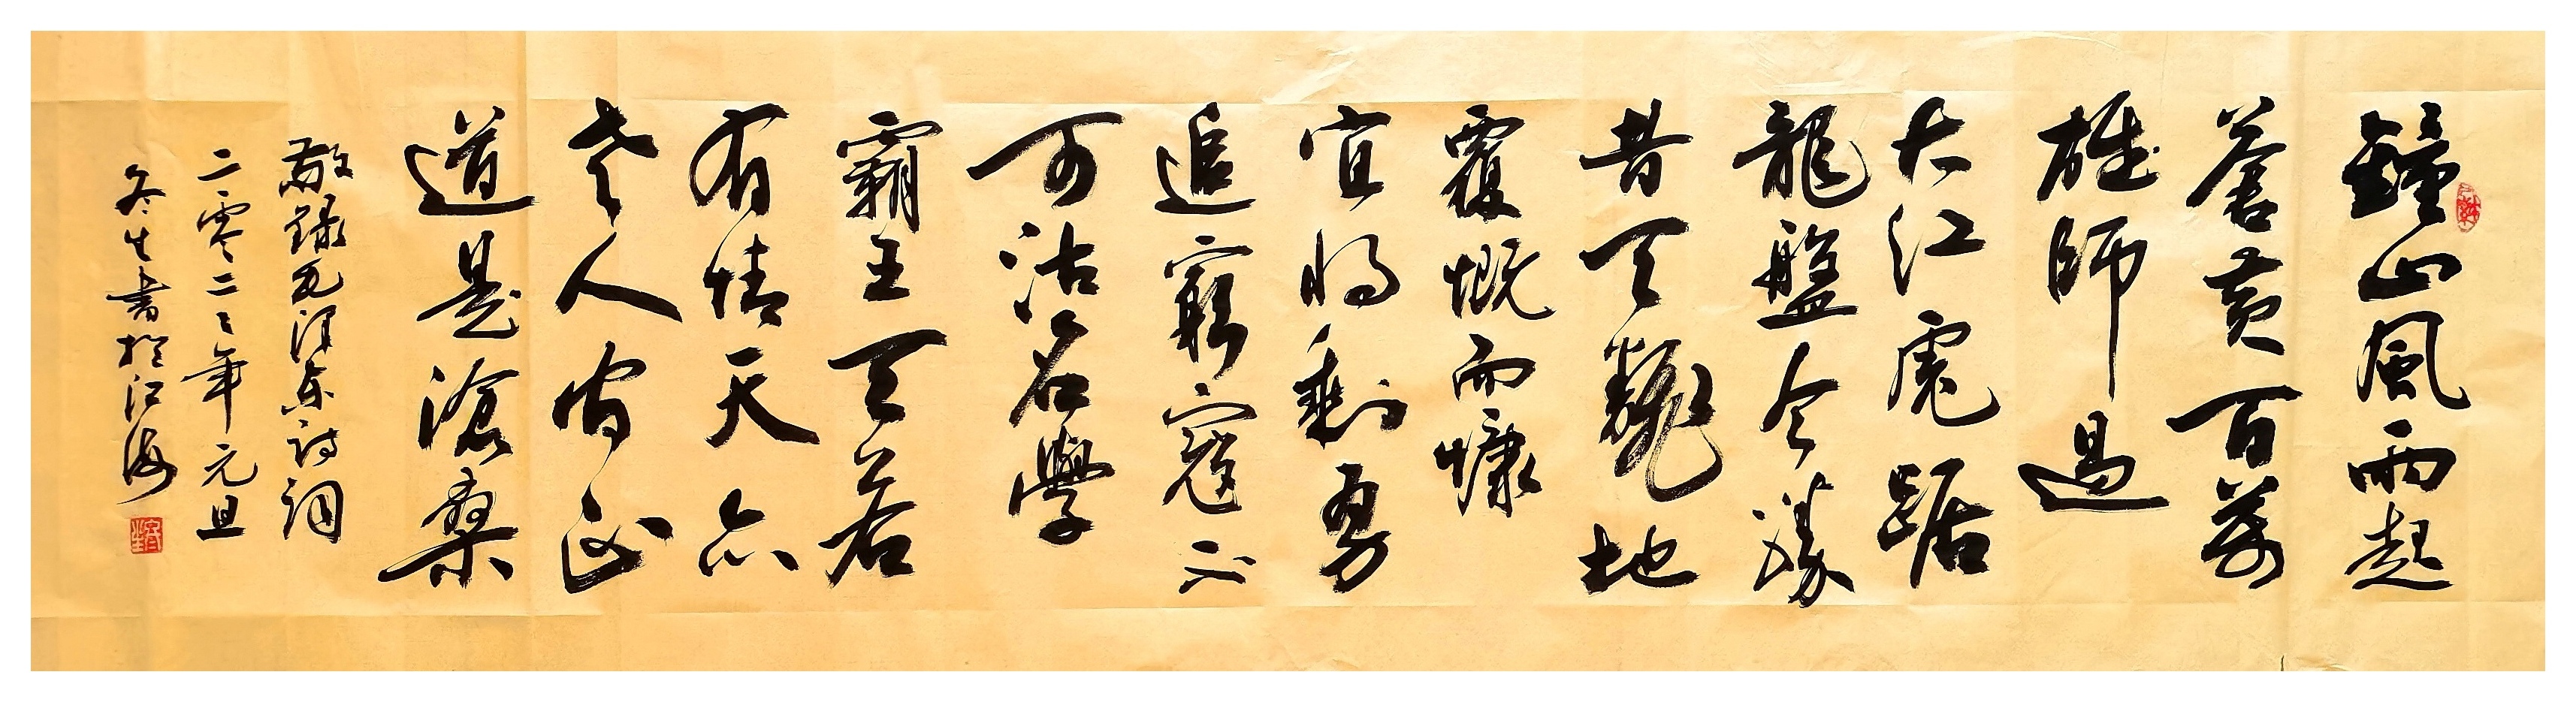 鐘山風雨起
蒼黃百萬
雄師過
大江虎踞
龍盤今勝
昔天飜地
覆慨而慷
宜將剩勇
追窮寇不
可沽名學
霸王天若
有情天亦
老人間正
道是滄桑
敬錄毛澤東詩詞
二零二二年元旦
冬生書於江海